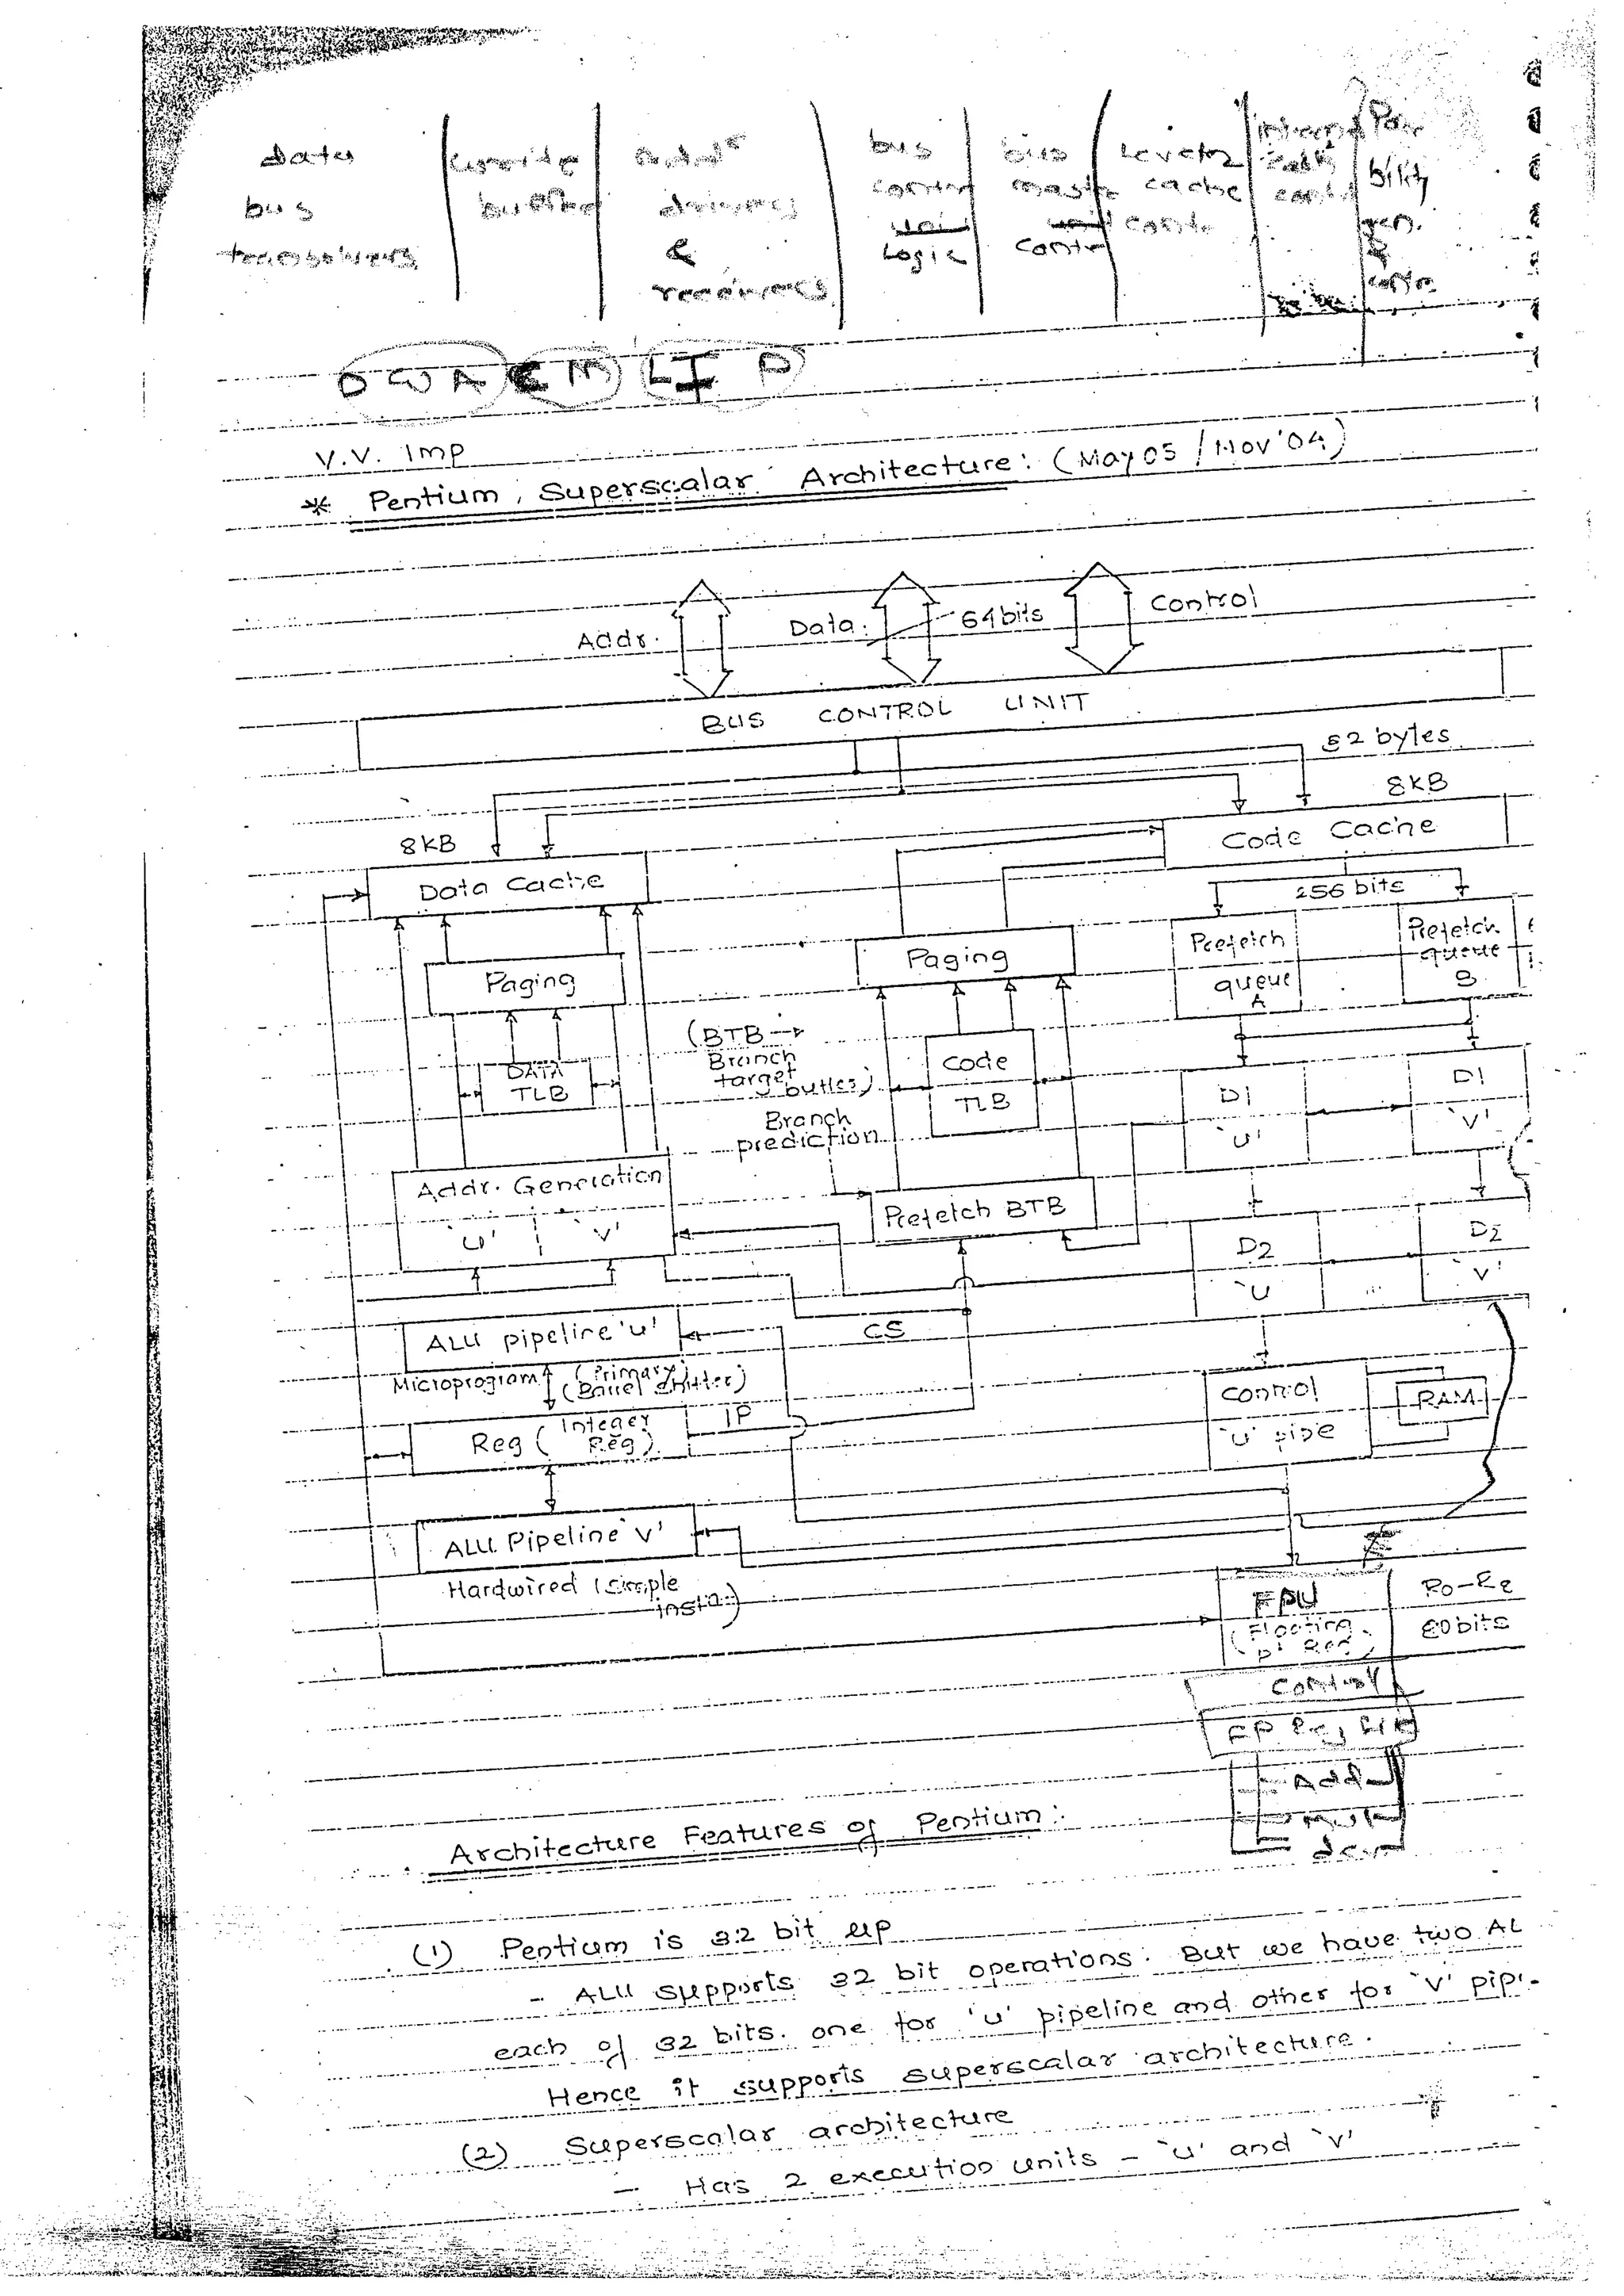 data | write | addr | bus | bus | Level 2 | internal | Par
bus | buffer | drivers | control | master | cache | cache | bility
transceivers | & | unit | unit | contr | cont | gen.
receivers | Logic | contr | & contr
D W A C M L I P
V.V. Imp
* Pentium, Superscalar Architecture: (May 05 / Nov'04)
Addr. Data. 64 bits Control
BUS CONTROL UNIT
32 bytes
8KB
8KB
Code Cache
Data Cache
256 bits
Paging
Paging
Prefetch
queue
A
Prefetch
queue
B
(BTB →
Branch
target
buffer)
DATA
TLB
Code
TLB
D1
'U'
D1
'V'
Branch
prediction
Addr. Generation
'U' 'V'
Prefetch BTB
D2
'U
D2
'V'
ALU pipeline 'U'
CS
Microprogram (Primary)
(Barrel Shifter)
Control
'U' pipe
RAM
Reg (Integer
Reg)
IP
ALU Pipeline 'V'
Hardwired (simple
instn)
FPU
(Floating
pt Reg)
80 bits
Control
FP Reg File
Add
Architecture Features of Pentium:
(1) Pentium is 32 bit µP
- ALU supports 32 bit operations. But we have two AL
each of 32 bits. one for 'U' pipeline and other for 'V' pip
Hence it supports superscalar architecture.
(2) Superscalar architecture
- Has 2 execution units - 'U' and 'V'